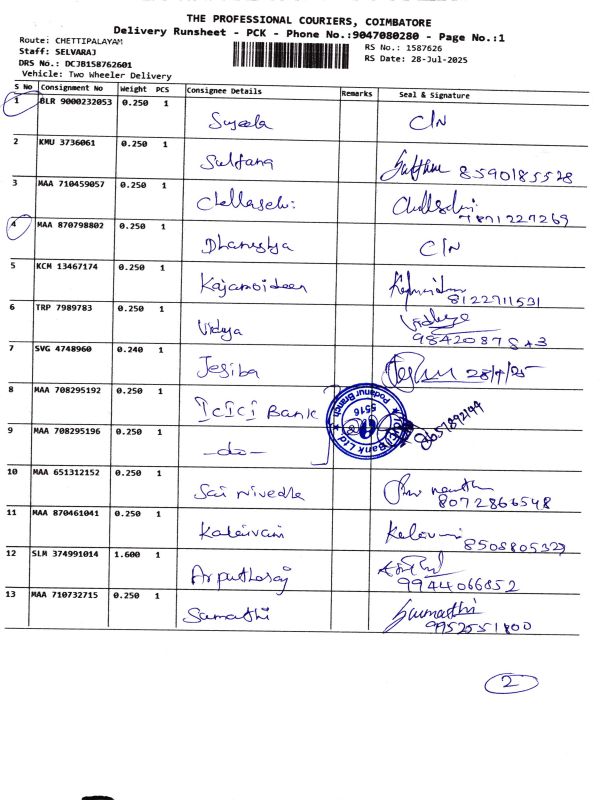 THE PROFESSIONAL COURIERS, COIMBATORE
Delivery Runsheet - PCK - Phone No.:9047080280 - Page No.:1
Route: CHETTIPALAYAM
Staff: SELVARAJ
DRS No.: DCJB158762601
Vehicle: Two Wheeler Delivery
RS No.: 1587626
RS Date: 28-Jul-2025
S No Consignment No Weight PCS Consignee Details Remarks Seal & Signature
1 BLR 9000232053 0.250 1 Sujeela C/N
2 KMU 3736061 0.250 1 Sulfana 8590185528
3 MAA 710459057 0.250 1 Chellaselvi 7871227269
4 MAA 870798802 0.250 1 Dhanushya C/N
5 KCM 13467174 0.250 1 Kajamoideen 8122711531
6 TRP 7989783 0.250 1 Vidya Vidhya
7 SVG 4748960 0.240 1 Jesiba 28/7/25
8 MAA 708295192 0.250 1 ICICI Bank
9 MAA 708295196 0.250 1 -do-
ICICI Bank Ltd
Podanur Branch
5516
10 MAA 651312152 0.250 1 Sai nivedha 8072866548
11 MAA 870461041 0.250 1 Kalaivani 8508805329
12 SLM 374991014 1.600 1 Arputharaj 9944066852
13 MAA 710732715 0.250 1 Sumathi 9952551800
2